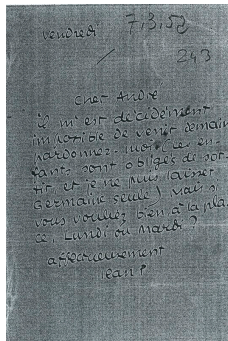 vendredi
7.3.52
243
cher André
il m'est décidément
impossible de venir demain
pardonnez-moi (les en-
fants sont obligés de sor-
tir, et je ne puis laisser
Germaine seule) Mais si
vous vouliez bien à la pla-
ce, Lundi ou mardi ?
affectueusement
Jean P.